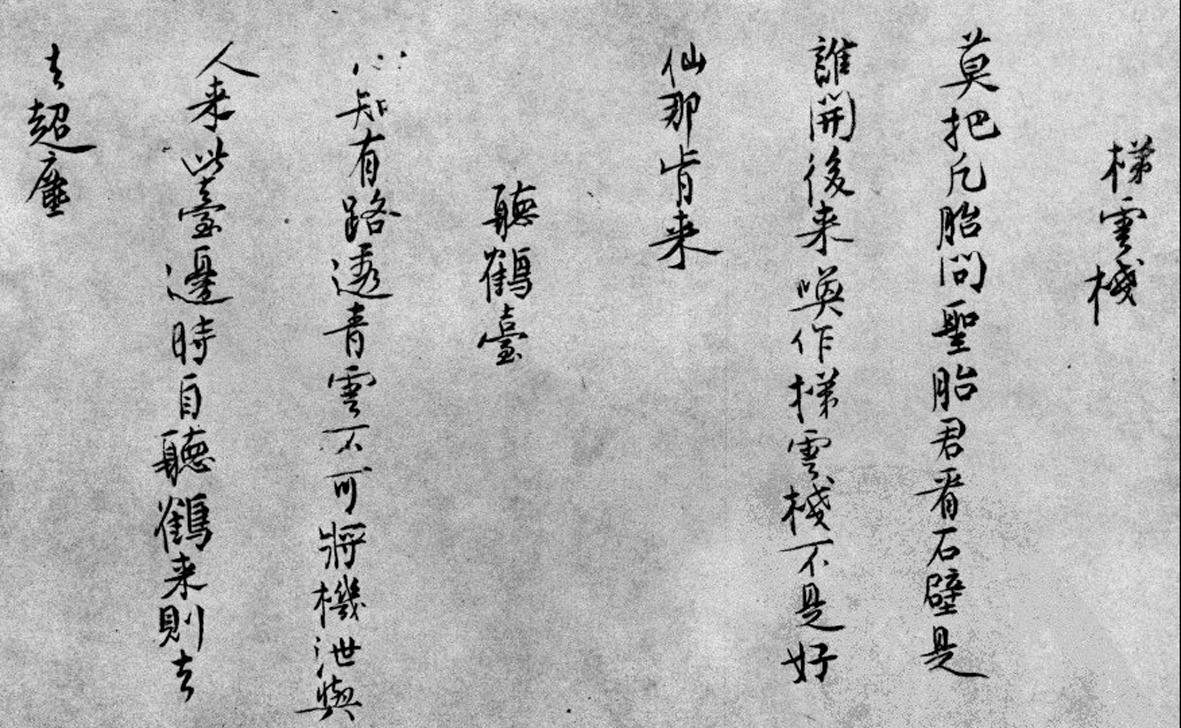 梯雲棧
莫把凡胎問聖胎君看石壁是
誰開後来喚作梯雲棧不是好
仙那肯来
聽鶴臺
心知有路透青雲不可將機泄與
人来此臺邊時自聽鶴来則去
去超塵